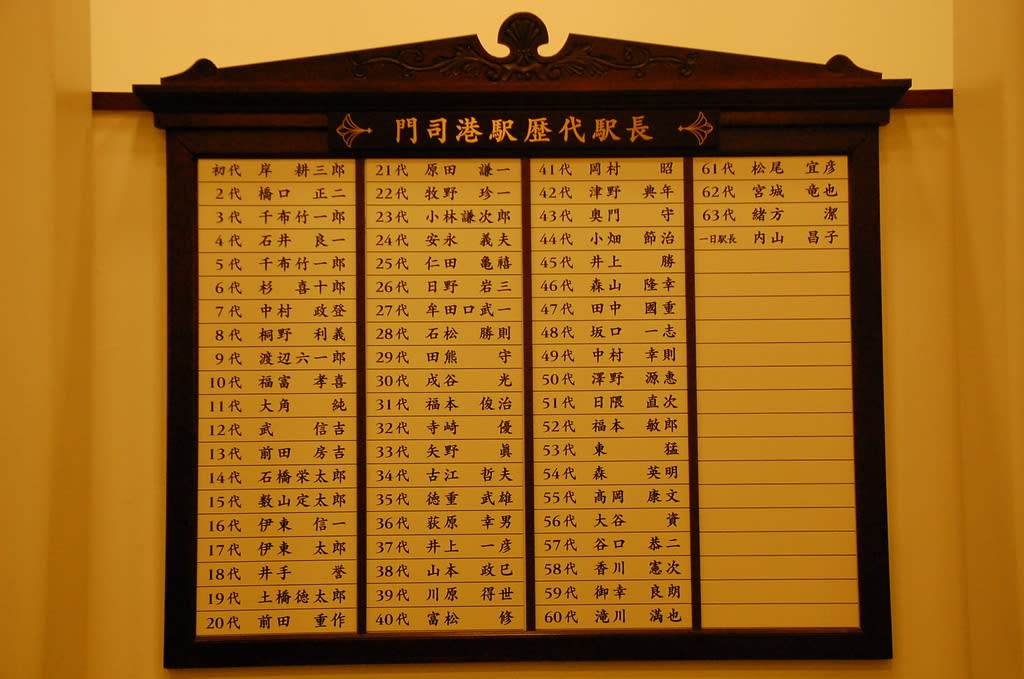 門司港駅歴代駅長
初代 岸 耕三郎
2代 橋口 正二
3代 千布竹一郎
4代 石井 良一
5代 千布竹一郎
6代 杉 喜十郎
7代 中村 政登
8代 桐野 利義
9代 渡辺六一郎
10代 福富 孝喜
11代 大角 純
12代 武 信吉
13代 前田 房吉
14代 石橋栄太郎
15代 数山定太郎
16代 伊東 信一
17代 伊東 太郎
18代 井手 誉
19代 土橋徳太郎
20代 前田 重作
21代 原田 謙一
22代 牧野 珍一
23代 小林謙次郎
24代 安永 義夫
25代 仁田 亀禧
26代 日野 岩三
27代 牟田口武一
28代 石松 勝則
29代 田熊 守
30代 戌谷 光
31代 福本 俊治
32代 寺崎 優
33代 矢野 眞
34代 古江 哲夫
35代 徳重 武雄
36代 荻原 幸男
37代 井上 一彦
38代 山本 政巳
39代 川原 得世
40代 富松 修
41代 岡村 昭
42代 津野 典年
43代 奥門 守
44代 小畑 節治
45代 井上 勝
46代 森山 隆幸
47代 田中 國重
48代 坂口 一志
49代 中村 幸則
50代 澤野 源惠
51代 日隈 直次
52代 福本 敏郎
53代 東 猛
54代 森 英明
55代 高岡 康文
56代 大谷 資
57代 谷口 恭二
58代 香川 憲次
59代 御幸 良朗
60代 滝川 満也
61代 松尾 宜彦
62代 宮城 竜也
63代 緒方 潔
一日駅長 内山 昌子